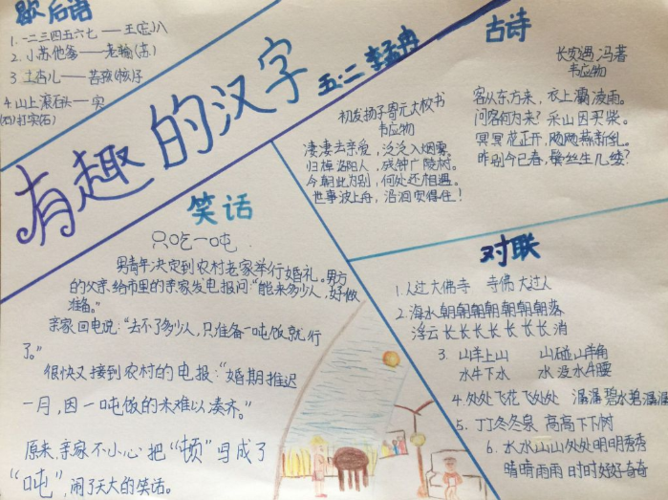 歇后语
1.一二三四五六七——王(忘)八
2.小苏他爹——老输(苏)
3.土杏儿——苦孩(核)子
4.山上滚石头——实
(石)打实(石)
有趣的汉字
五:二
古诗
长安遇冯著
韦应物
客从东方来,衣上灞凌雨。
问客何为来?采山因买柴。
冥冥花正开,飏飏燕新乳。
昨别今已春,鬓丝生几缕?
初发扬子寄元大校书
韦应物
凄凄去亲爱,泛泛入烟雾。
归棹洛阳人,残钟广陵树。
今朝此为别,何处还相遇。
世事波上舟,沿洄安得住!
笑话
只吃一吨
男青年决定到农村老家举行婚礼。男方
的父亲给市里的亲家发电报问:“能来多少人,好做
准备。”
亲家回电说:“去不了多少人,只准备一吨饭就行
了。”
很快又接到农村的电报:“婚期推迟
一月,因一吨饭的米难以凑齐。”
原来,亲家不小心把“顿”写成了
“吨”,闹了天大的笑话。
对联
1.人过大佛寺 寺佛大过人
2.海水朝朝朝朝朝朝朝落
浮云长长长长长长长消
3.山羊上山 山碰山羊角
水牛下水 水没水牛腰
4.处处飞花飞处处 潺潺碧水碧潺潺
5.丁丁冬冬泉 高高下下树
6.水水山山处处明明秀秀
晴晴雨雨时时好好奇奇